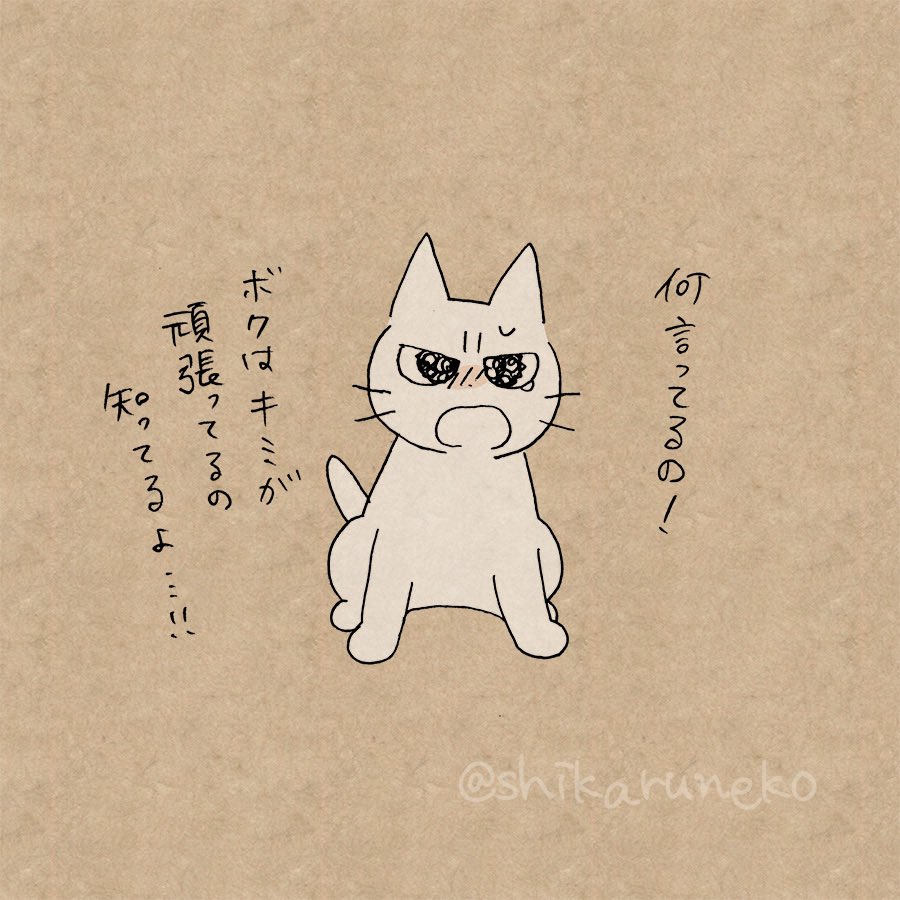 何言ってるの！
ボクはキミが
頑張ってるの
知ってるよ…!!
@shikaruneko